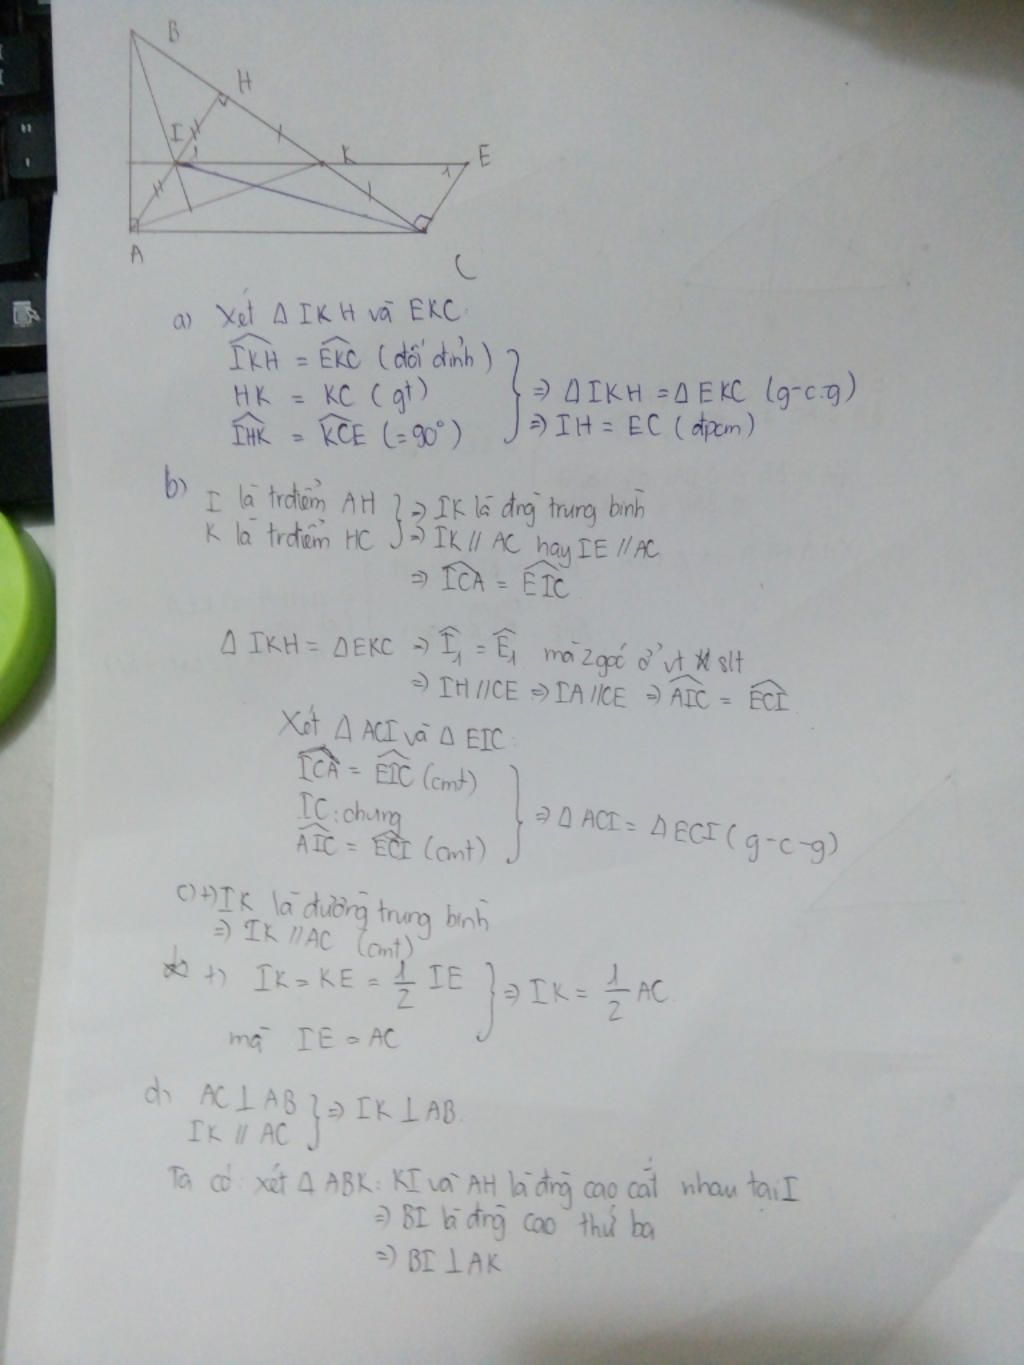 B
H
I
1
K
1
E
A
C
a) Xét Δ IKH và EKC:
IKH = EKC (đối đỉnh)
HK = KC (gt)
IHK = KCE (=90°)
⇒ Δ IKH = Δ EKC (g-c-g)
⇒ IH = EC (đpcm)
b) I là trđiểm AH
K là trđiểm HC
⇒ IK là đng trung bình
⇒ IK // AC hay IE // AC
⇒ ICA = EIC
Δ IKH = Δ EKC ⇒ I1 = E1 mà 2 góc ở vt slt
⇒ IH // CE ⇒ IA // CE ⇒ AIC = ECI
Xét Δ ACI và Δ EIC:
ICA = EIC (cmt)
IC: chung
AIC = ECI (cmt)
⇒ Δ ACI = Δ ECI (g-c-g)
c) +) IK là đường trung bình
⇒ IK // AC (cmt)
+) IK = KE = 1/2 IE
mà IE = AC
⇒ IK = 1/2 AC
d) AC ⊥ AB
IK // AC
⇒ IK ⊥ AB.
Ta có: xét Δ ABK: KI và AH là đng cao cắt nhau tại I
⇒ BI là đng cao thứ ba
⇒ BI ⊥ AK